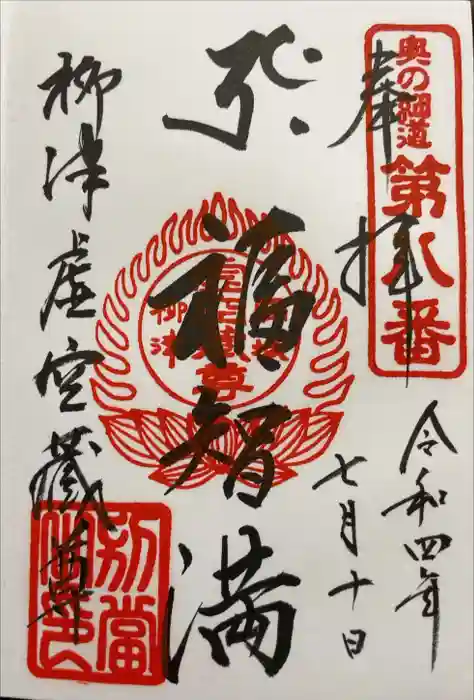 奉拝
奥の細道
第八番
令和四年
七月十日
福智満
柳津虚空蔵尊
柳津
別當